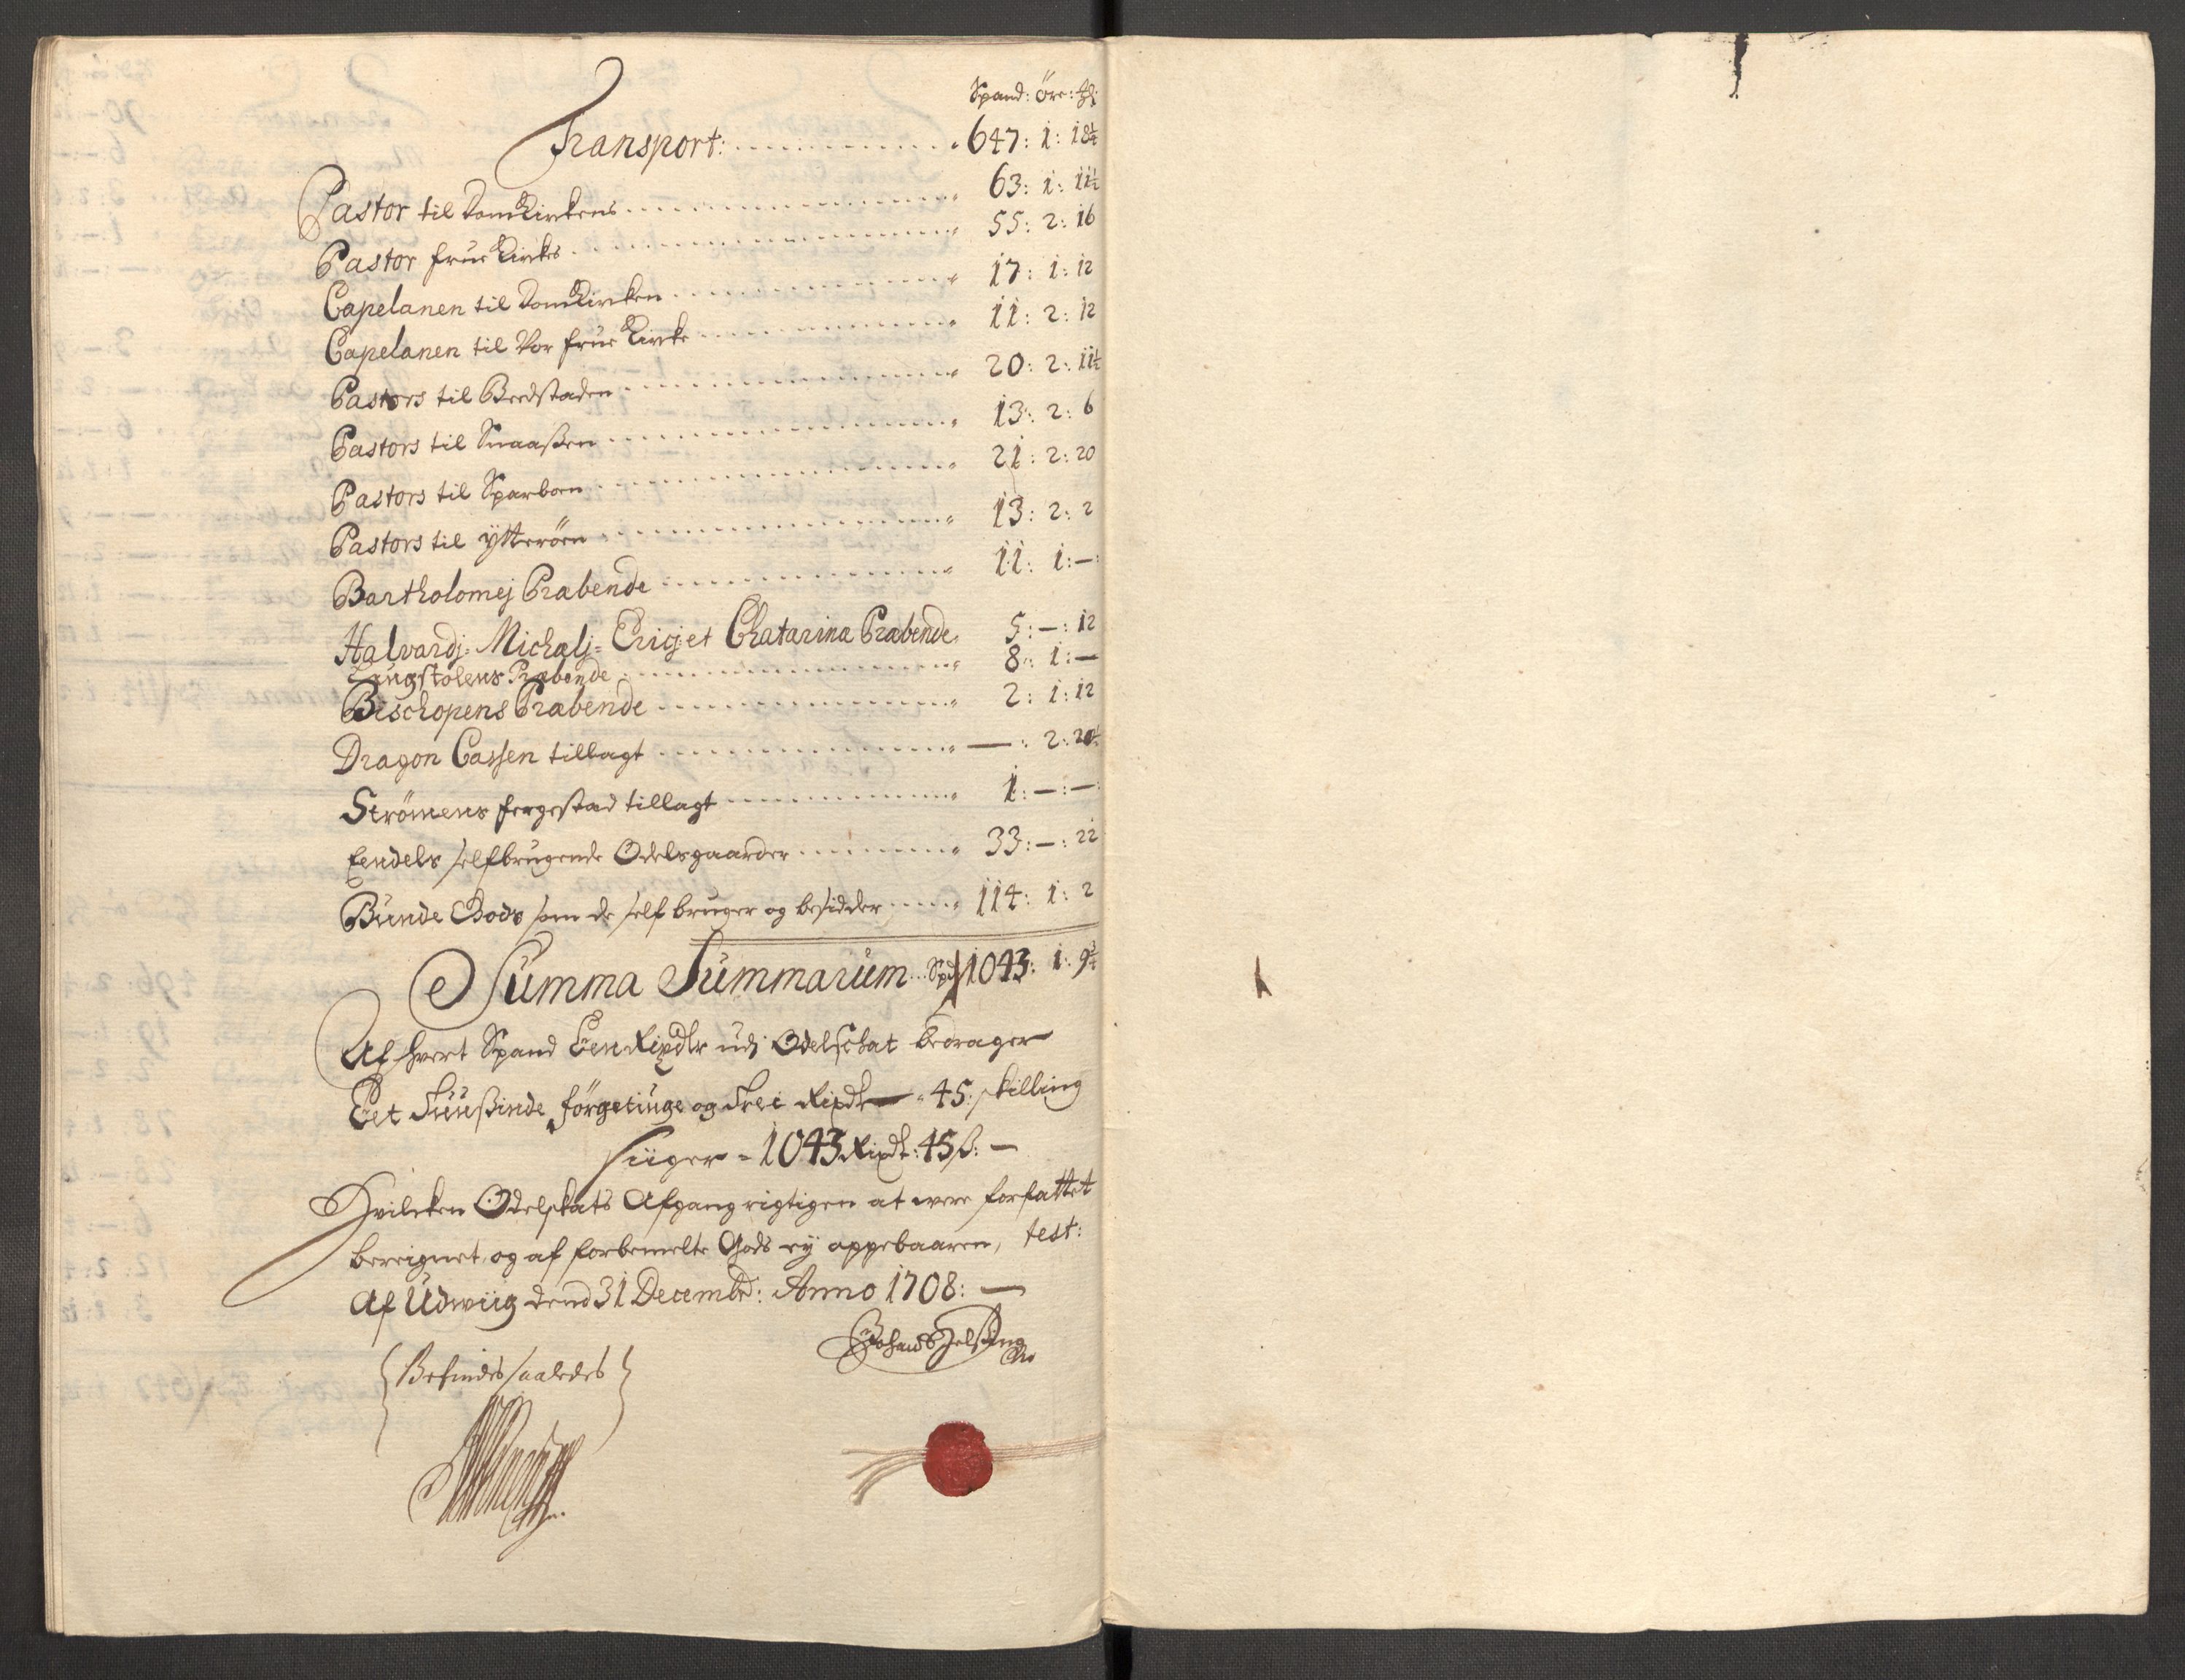 Spand: öre: 
Transport: 647: 1: 18¼
Pastor til Domkirckens 63: 1: 11½
Pastor frue Kirckes 55: 2: 16
Capelanen til Domkircken 17: 1: 12
Capelanen til Vor frue Kircke 11: 2: 12
Pastors til Beedstaden 20: 2: 11½
Pastors til Snaaßen 13: 2: 6
Pastors til Sparboen 21: 2: 20
Pastors til ytteröen 13: 2: 2
Bartholomej Præbende 11: 1: —
Halvardj- Michalj- Ericj et Chatarina Præbende 5: —: 12
Lengstolens Præbende 8: 1: —
Bischopens Præbende 2: 1: 12
Dragon Cassen tillagt —: 2: 20½
Strömens fergestad tillagt 1: —: —
Eendels selfbrugende Odelsgaarder 33: —: 22
Bunde Gods som de self bruger og besidder 114: 1: 2
Summa Summarum Spd 1043: 1: 9¾
Af hvert Spand Een Rixdlr udj Odelschat bedrager
Eet Tuußinde förgetiuge og Trei Rixdr 45 skilling
siiger 1043 Rixdr: 45 ß: —
Hvilcken Odelskats Afgang rigtigen at were forfattet
bereignet og af forbemelte Gods ey oppebaaren, test:
Af Udwiig dend 31 Decembr: Anno 1708: —
Befindes saaledes